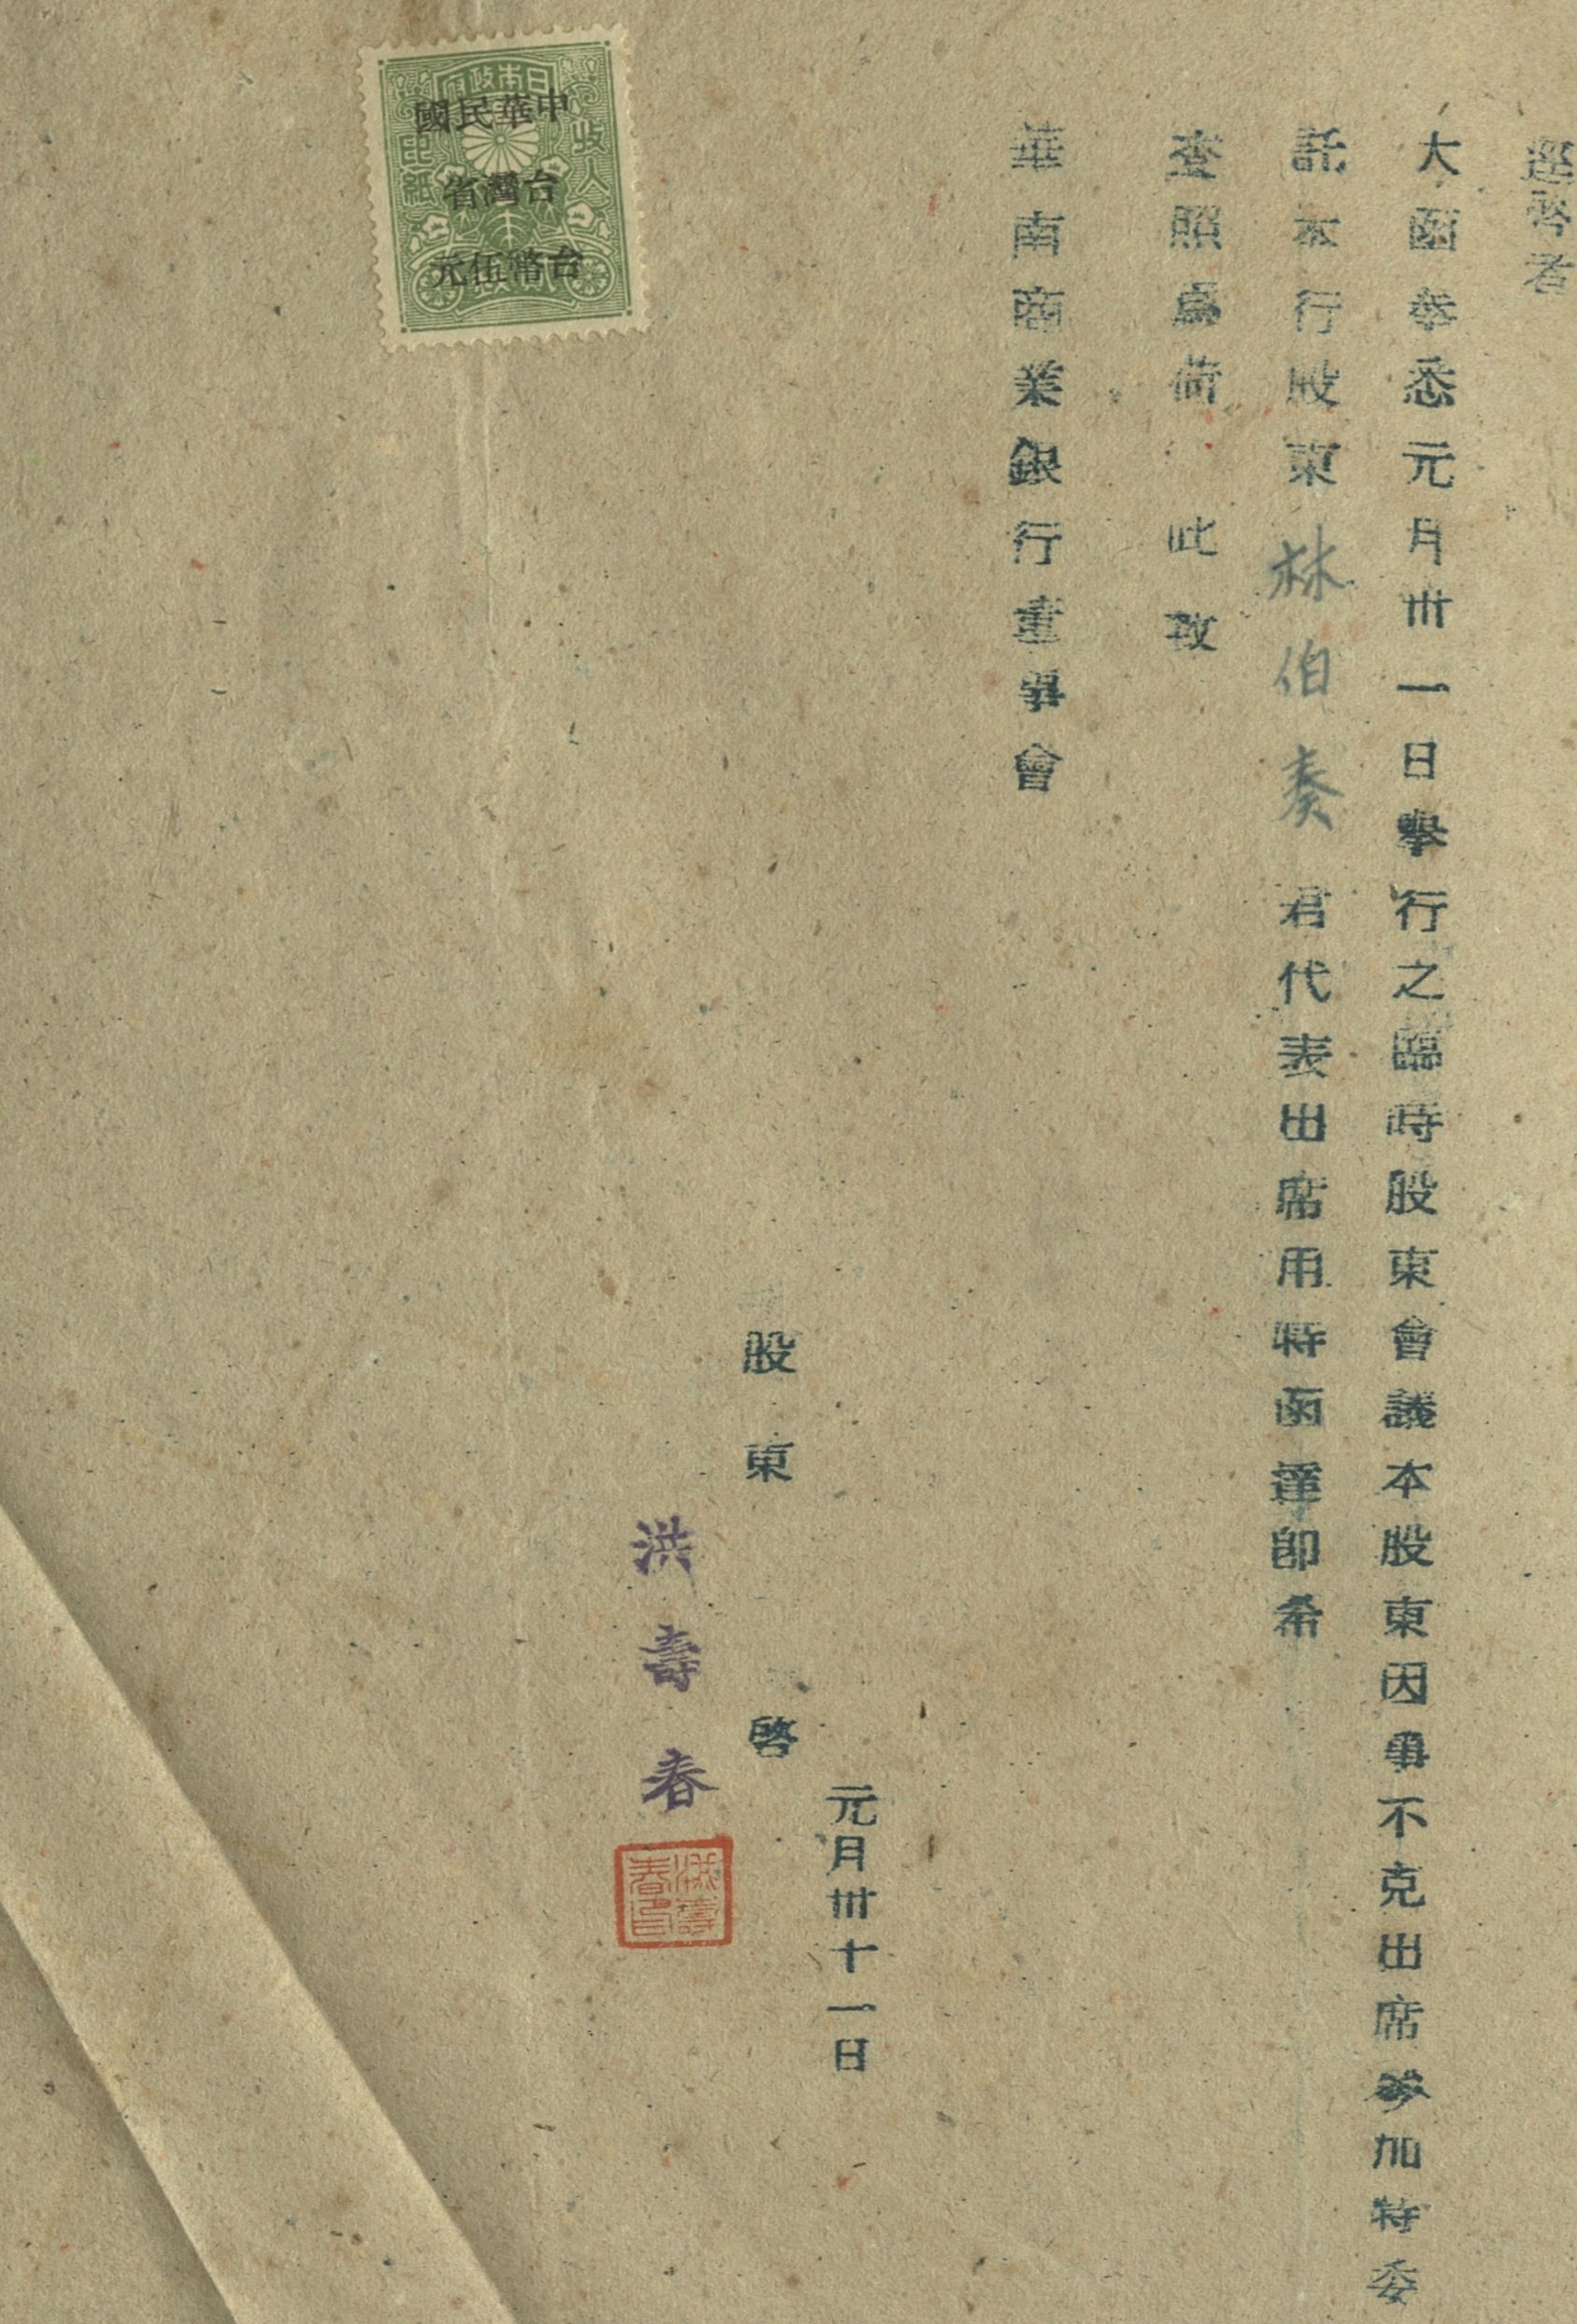 逕啓者
大函奉悉元月卅一日舉行之臨時股東會議本股東因事不克出席參加特委
託本行股東林伯奏君代表出席用特函達卽希
查照爲荷 此致
華南商業銀行董事會
元月卅十一日
股東 啓
洪壽春
洪壽春印
日本政府
收入印紙
中華民國
台灣省
台幣伍元